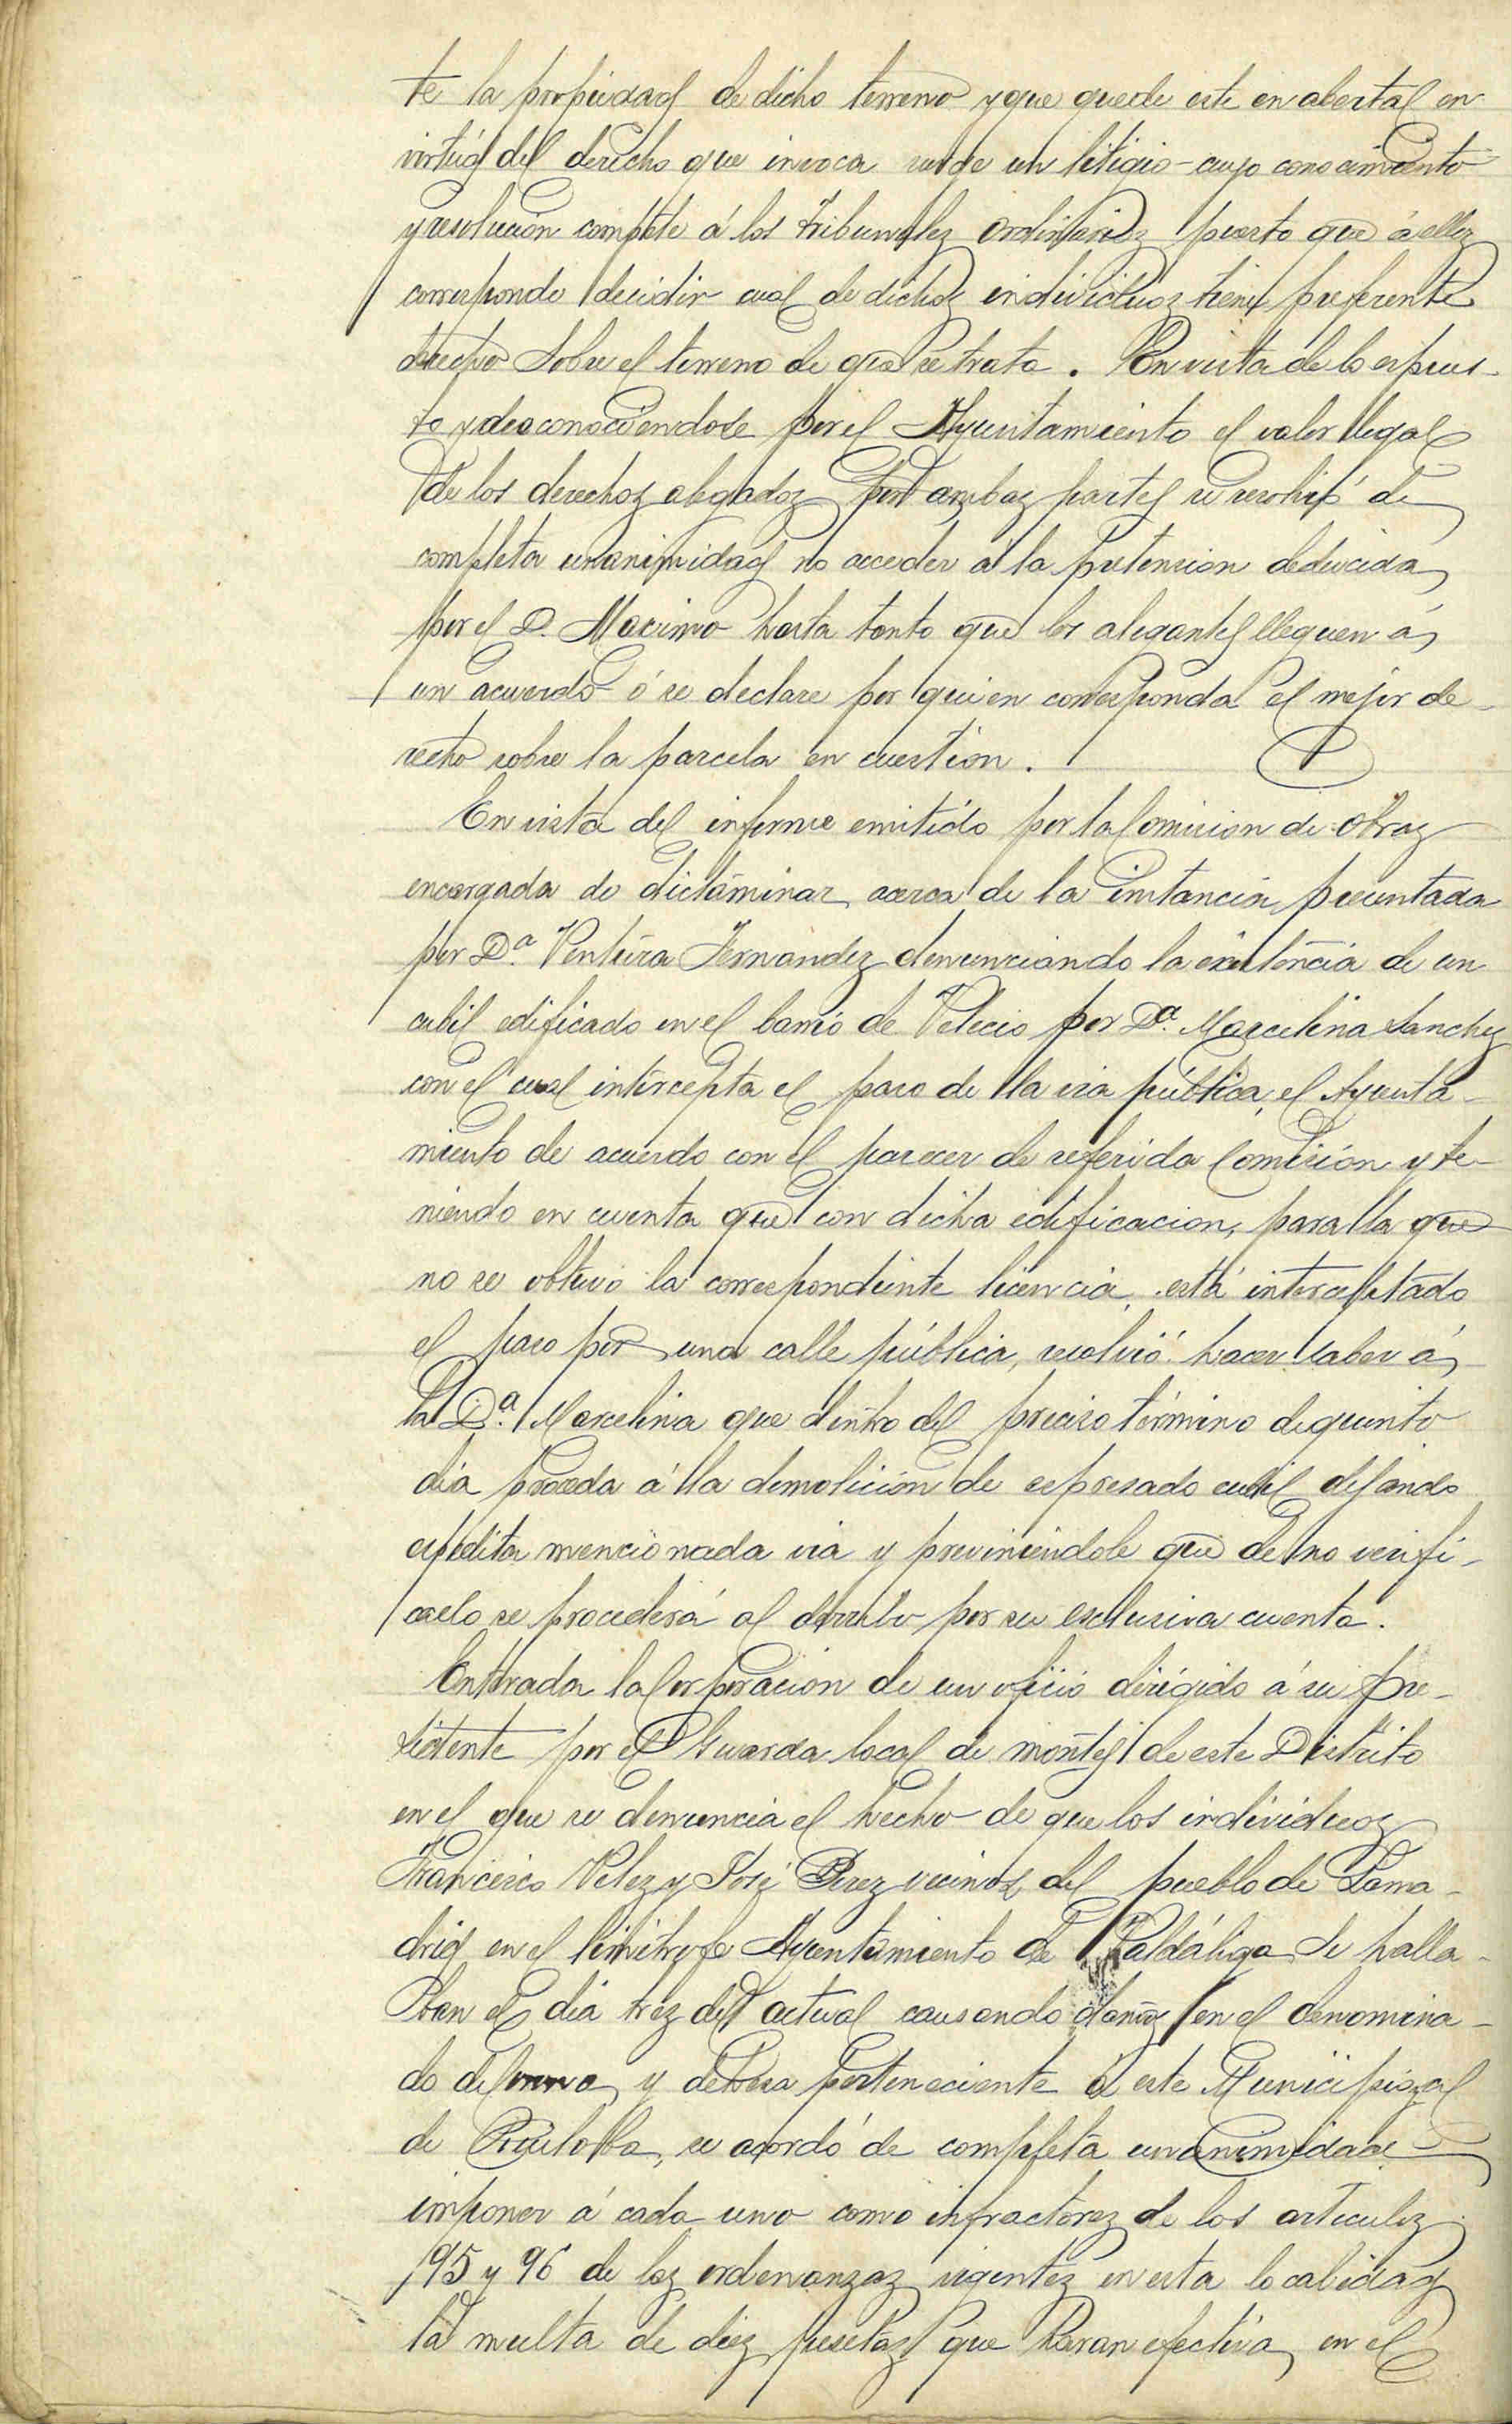 te la propiedad de dicho terreno y que quede este en abertal en
virtúd del derecho que invoca surge un litigio cuyo conocimiento
y resolucion compete á los tribunales ordinarios puesto que á ellos
corresponde decidir cual de dichos individuos tiene preferente
derecho sobre el terreno de que se trata. En vista de lo expues-
to y desconociendose por el Ayuntamiento el valor legal
de los derechos alegados por ambas partes se resolvió de
completa unanimidad no acceder á la pretension deducida
por el D. Maximo hasta tanto que los alegantes lleguen á
un acuerdo ó se declare por quien corresponda el mejor de-
recho sobre la parcela en cuestion.
En vista del informe emitido por la Comision de obras
encargada de dictáminar acerca de la instancia presentada
por D.ª Ventura Fernandez denunciando la existencia de un
cubil edificado en el barrio de Velecio por D.ª Marcelina Sanchez
con el cual intercepta el paso de la via pública, el Ayunta-
miento de acuerdo con el parecer de referida Comision y te-
niendo en cuenta que con dicha edificacion, para la que
no se obtuvo la correspondiente licencia, está interceptado
el paso por una calle pública, resolvió hacer saber á
la D.ª Marcelina que dentro del preciso término de quinto
dia proceda á la demolicion de expresado cubil dejando
expedita mencionada via y previniendole que de no verifi-
carlo se procederá al derribo por su esclusiva cuenta.
Enterada la Corporacion de un oficio dirigido á su pre-
sidente por el Guarda local de montes de este Distrito
en el que se denuncia el hecho de que los individuos
Francisco Velez y José Perez vecinos del pueblo de Lama-
drid en el limitrofe Ayuntamiento de Valdáliga se halla-
ban el dia tres del actual causando daños en el denomina-
do y dehesa perteneciente á este Municipio y al
de Ruiloba, se acordó de completa unanimidad
imponer á cada uno como infractores de los articulos
95 y 96 de las ordenanzas vigentes en esta localidad
la multa de diez pesetas que haran efectiva en el